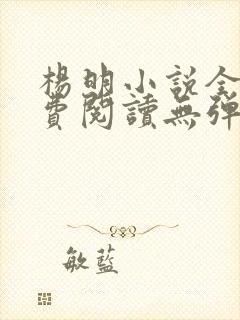 楊明小説全
費閱讀無彈
敏藍